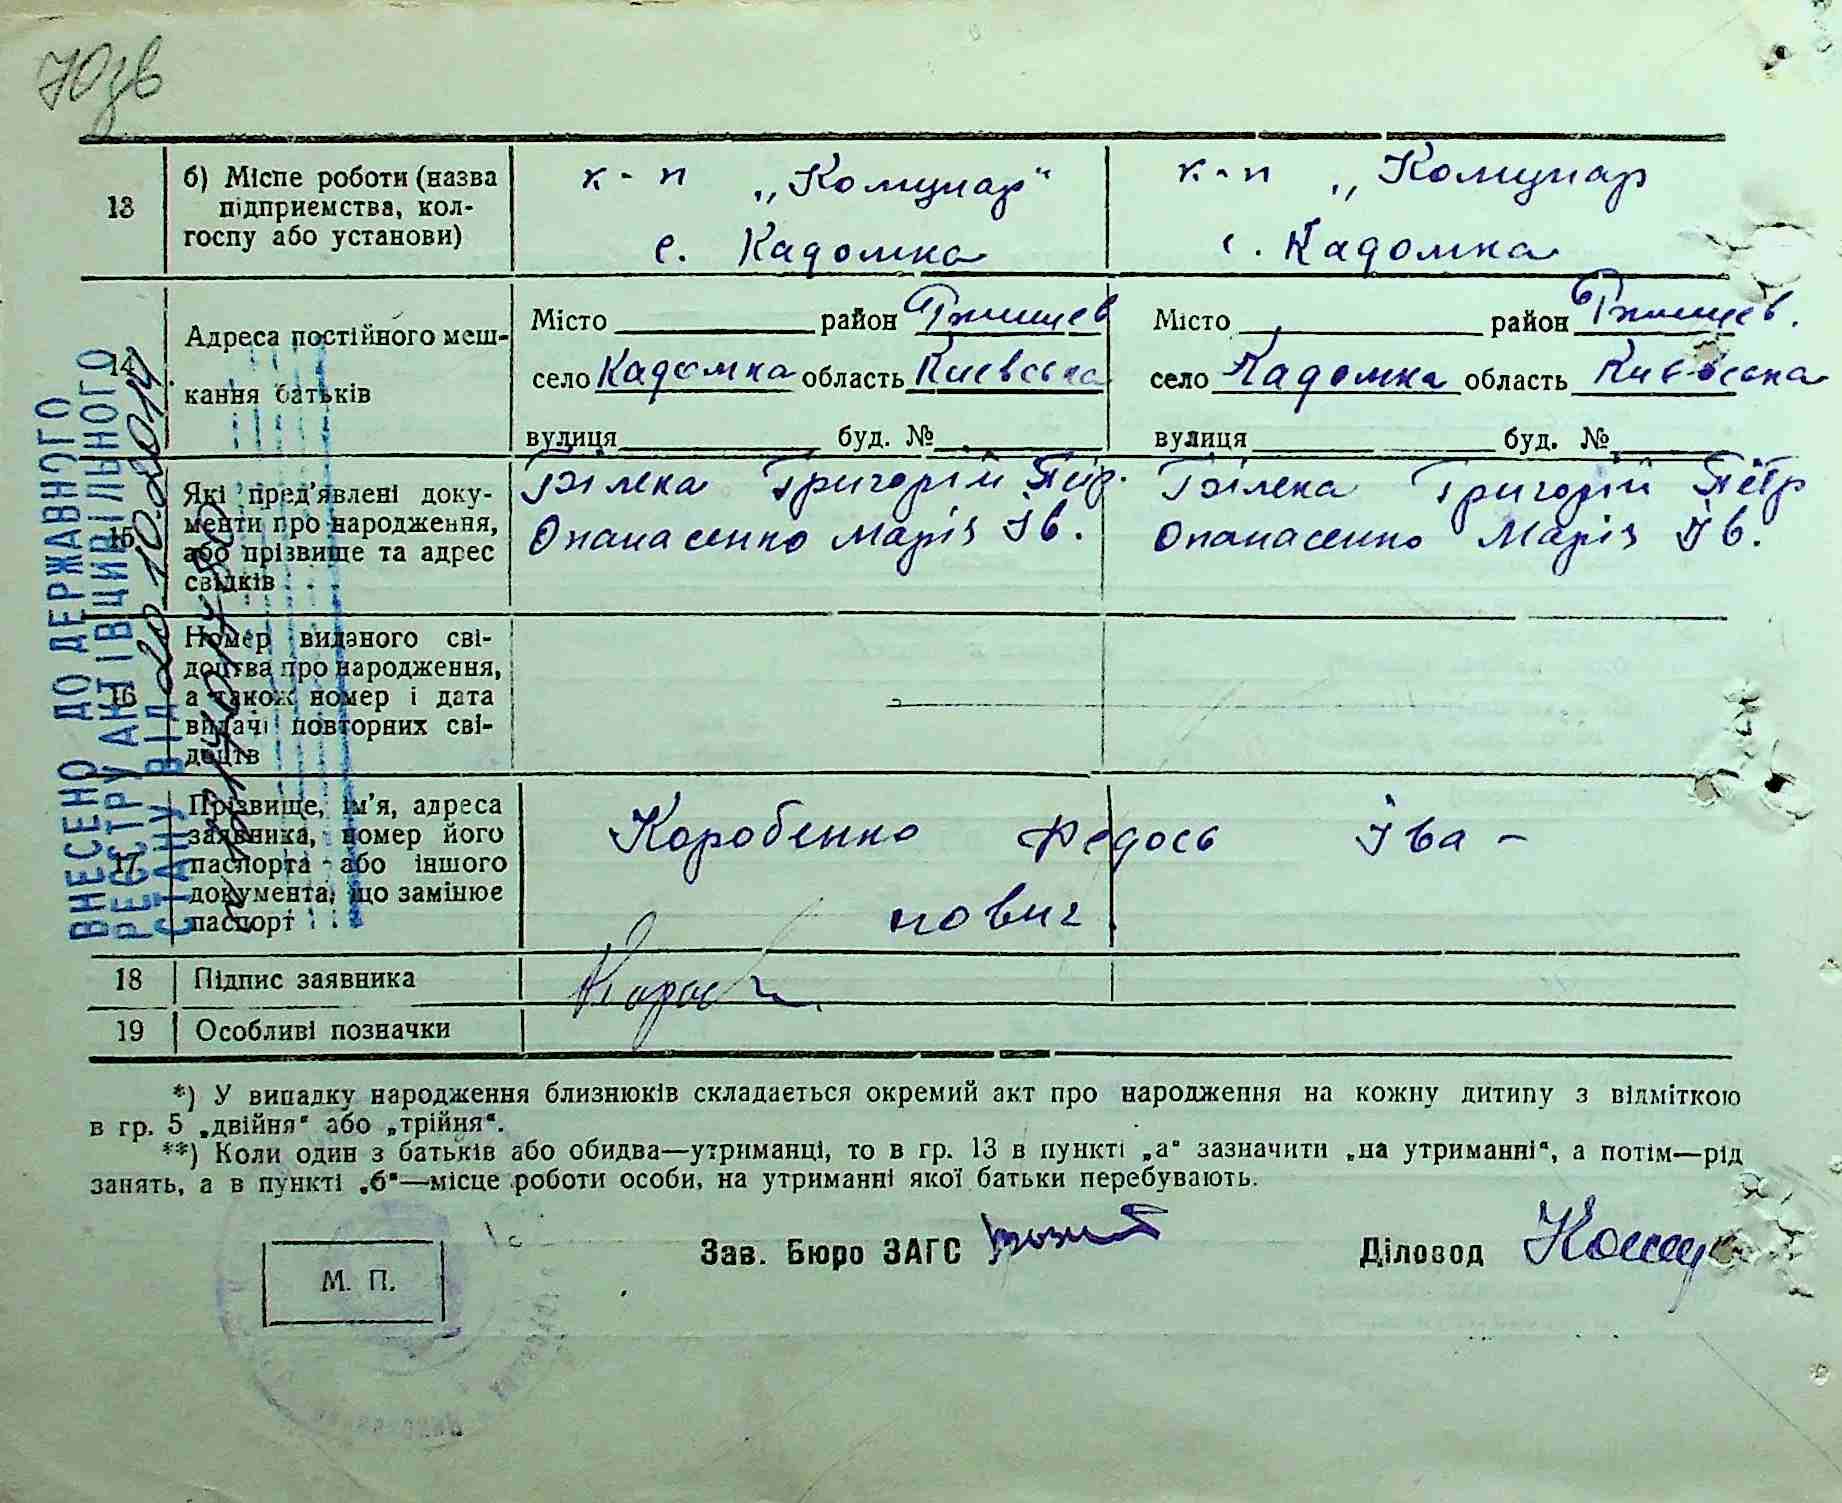 70 зв
13
б) Місце роботи (назва
підприємства, кол-
госпу або установи)
к-п „Комунар“
с. Кадомка
к-п „Комунар
с. Кадомка
14
Адреса постійного меш-
кання батьків
Місто район Ржищев
село Кадомка область Киевська
вулиця буд. №
Місто район Ржищев.
село Кадомка область Киевська
вулиця буд. №
15
Які пред'явлені доку-
менти про народження,
або прізвище та адрес
свідків
Білека Григорій Петр.
Опанасенко Марія Ів.
Білека Григорій Петр
Опанасенко Марія Ів.
16
Номер виданого сві-
доцтва про народження,
а також номер і дата
видачі повторних сві-
доцтв
17
Прізвище, ім'я, адреса
заявника, номер його
паспорта або іншого
документа, що замінює
паспорт
Коробенко Федось Іва-
нович
18
Підпис заявника
19
Особливі позначки
ВНЕСЕНО ДО ДЕРЖАВНОГО
РЕЄСТРУ АКТІВ ЦИВІЛЬНОГО
СТАНУ ВІД 20.10.2014
*) У випадку народження близнюків складається окремий акт про народження на кожну дитину з відміткою
в гр. 5 „двійня“ або „трійня“.
**) Коли один з батьків або обидва—утриманці, то в гр. 13 в пункті „а“ зазначити „на утриманні“, а потім—рід
занять, а в пункті „б“—місце роботи особи, на утриманні якої батьки перебувають.
М. П.
Зав. Бюро ЗАГС
Діловод